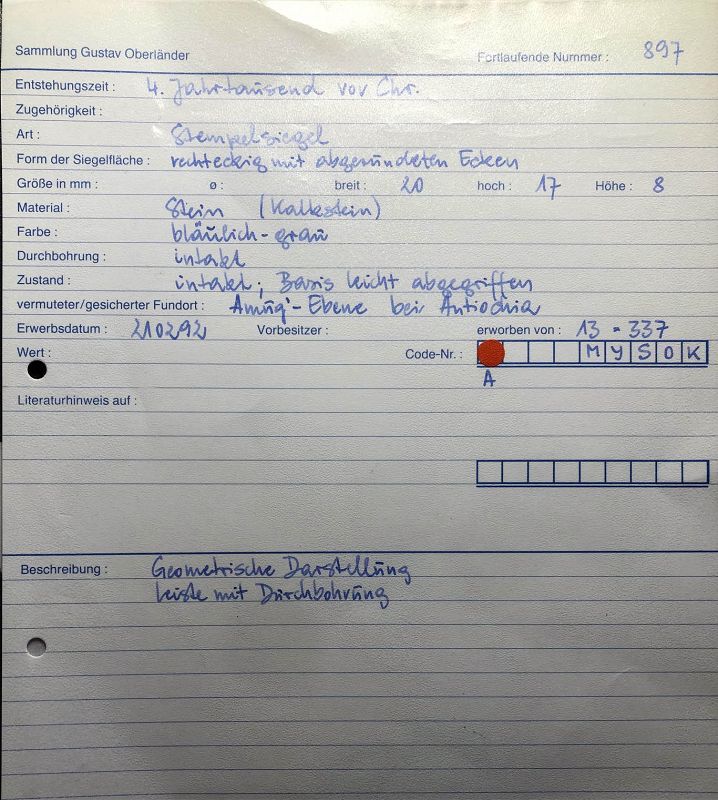 Sammlung Gustav Oberländer Fortlaufende Nummer : 897
Entstehungszeit : 4. Jahrtausend vor Chr.
Zugehörigkeit :
Art : Stempelsiegel
Form der Siegelfläche : rechteckig mit abgerundeten Ecken
Größe in mm : ø : breit : 20 hoch : 17 Höhe : 8
Material : Stein (Kalkstein)
Farbe : bläulich-grau
Durchbohrung : intakt
Zustand : intakt; Basis leicht abgegriffen
vermuteter/gesicherter Fundort : Amuq'-Ebene bei Antiochia
Erwerbsdatum : 210292 Vorbesitzer : erworben von : 13 - 337
Wert : Code-Nr. : M Y S O K
A
Literaturhinweis auf :
Beschreibung : Geometrische Darstellung
Leiste mit Durchbohrung